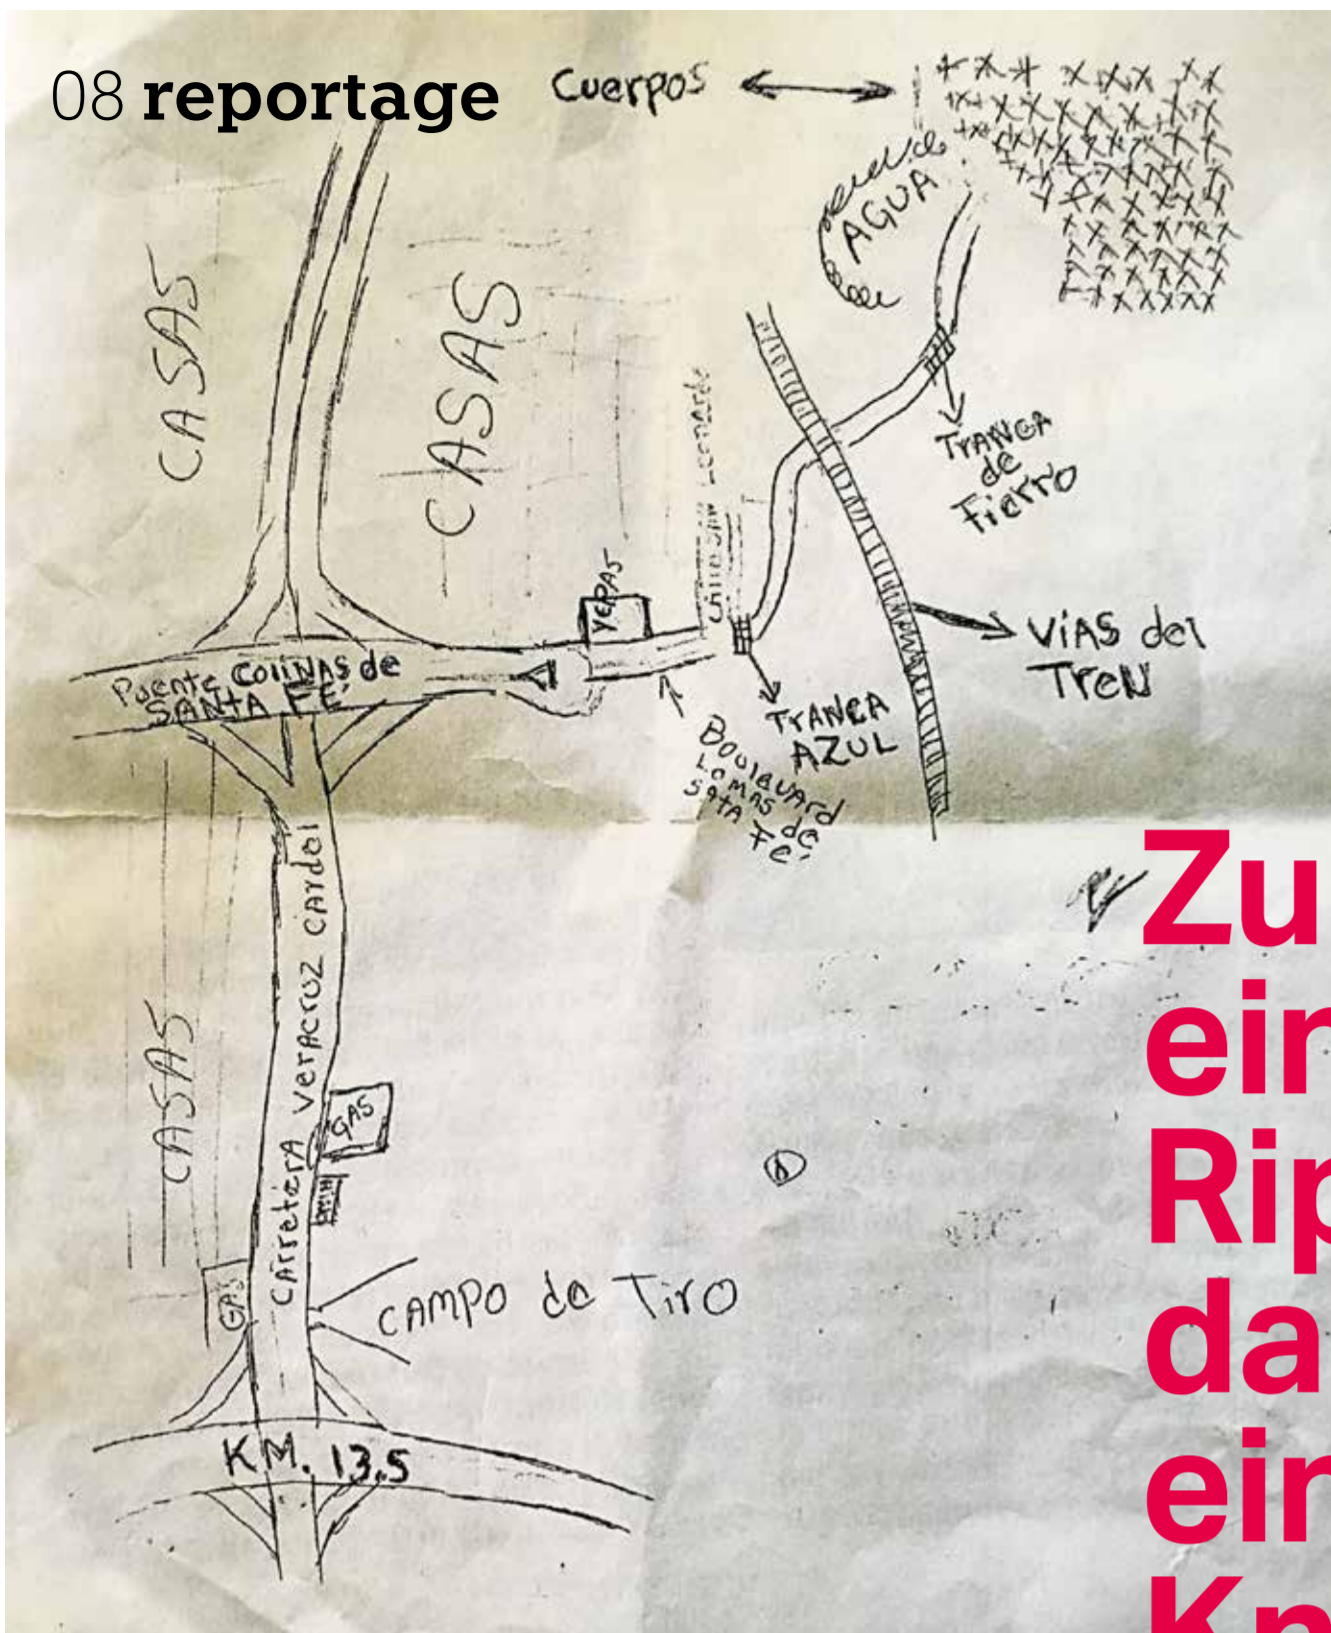 08 reportage
Cuerpos
AGUA
CASAS
CASAS
TRANCA
de
Fierro
VÍAS del
Tren
Puente Colinas de
SANTA FÉ
TRANCA
AZUL
BOULEVARD
LOMAS de
SATA FÉ
CARRETERA VERACRUZ CARDEL
CASAS
GAS
GAS
CAMPO de Tiro
KM. 13.5
Zu
ein
Rip
da
ein
Kn